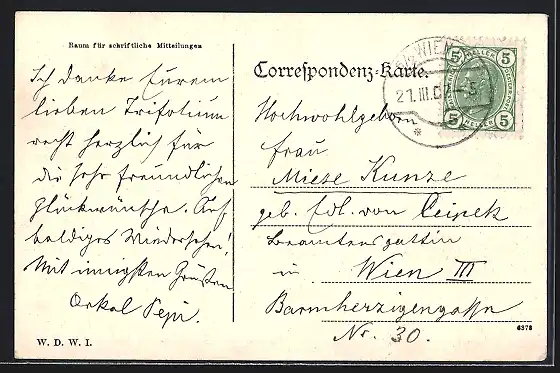 Raum für schriftliche Mitteilungen
Ich danke Eurem
lieben Trifolium
recht herzlich für
die sehr freundlichen
Glückwünsche. Auf
baldiges Wiedersehen!
Mit innigsten Grüßen
Onkel Pepi.
W. D. W. I.
Correspondenz-Karte.
WIEN
21.III.07
5 HELLER 5
5 HELLER 5
Hochwohlgeborn
Frau
Mieze Kunze
geb. Edl. von
Beamtensgattin
in Wien III
Barmherzigengasse
Nr. 30.
6378